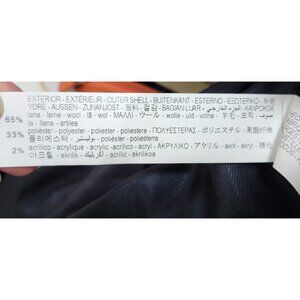 EXTERIOR - EXTÉRIEUR - OUTER SHELL - BUITENKANT - ESTERNO - ΕΞΩΤΕΡΙΚΟ - 外套
YDRE - AUSSEN - ZUNANJOST - 面料 - 겉감 - BAGIAN LUAR - الجزء الخارجي - KANPOKOA
65% lana - laine - wool - lã - wol - ΜΑΛΛΙ - ウール - wolle - uld - volna - 羊毛 - 모직 - صوف
la - llana - artilea
33% poliéster - polyester - poliestere - ΠΟΛΥΕΣΤΕΡΑΣ - ポリエステル - 聚酯纤维
폴리에스터 - بوليستير - polièster - poliesterra
2% acrílico - acrylique - acrylic - acryl - ΑΚΡΥΛΙΚΟ - アクリル - akril - akryl
아크릴 - akrilik - أكريليك - acrílic - akrilikoa